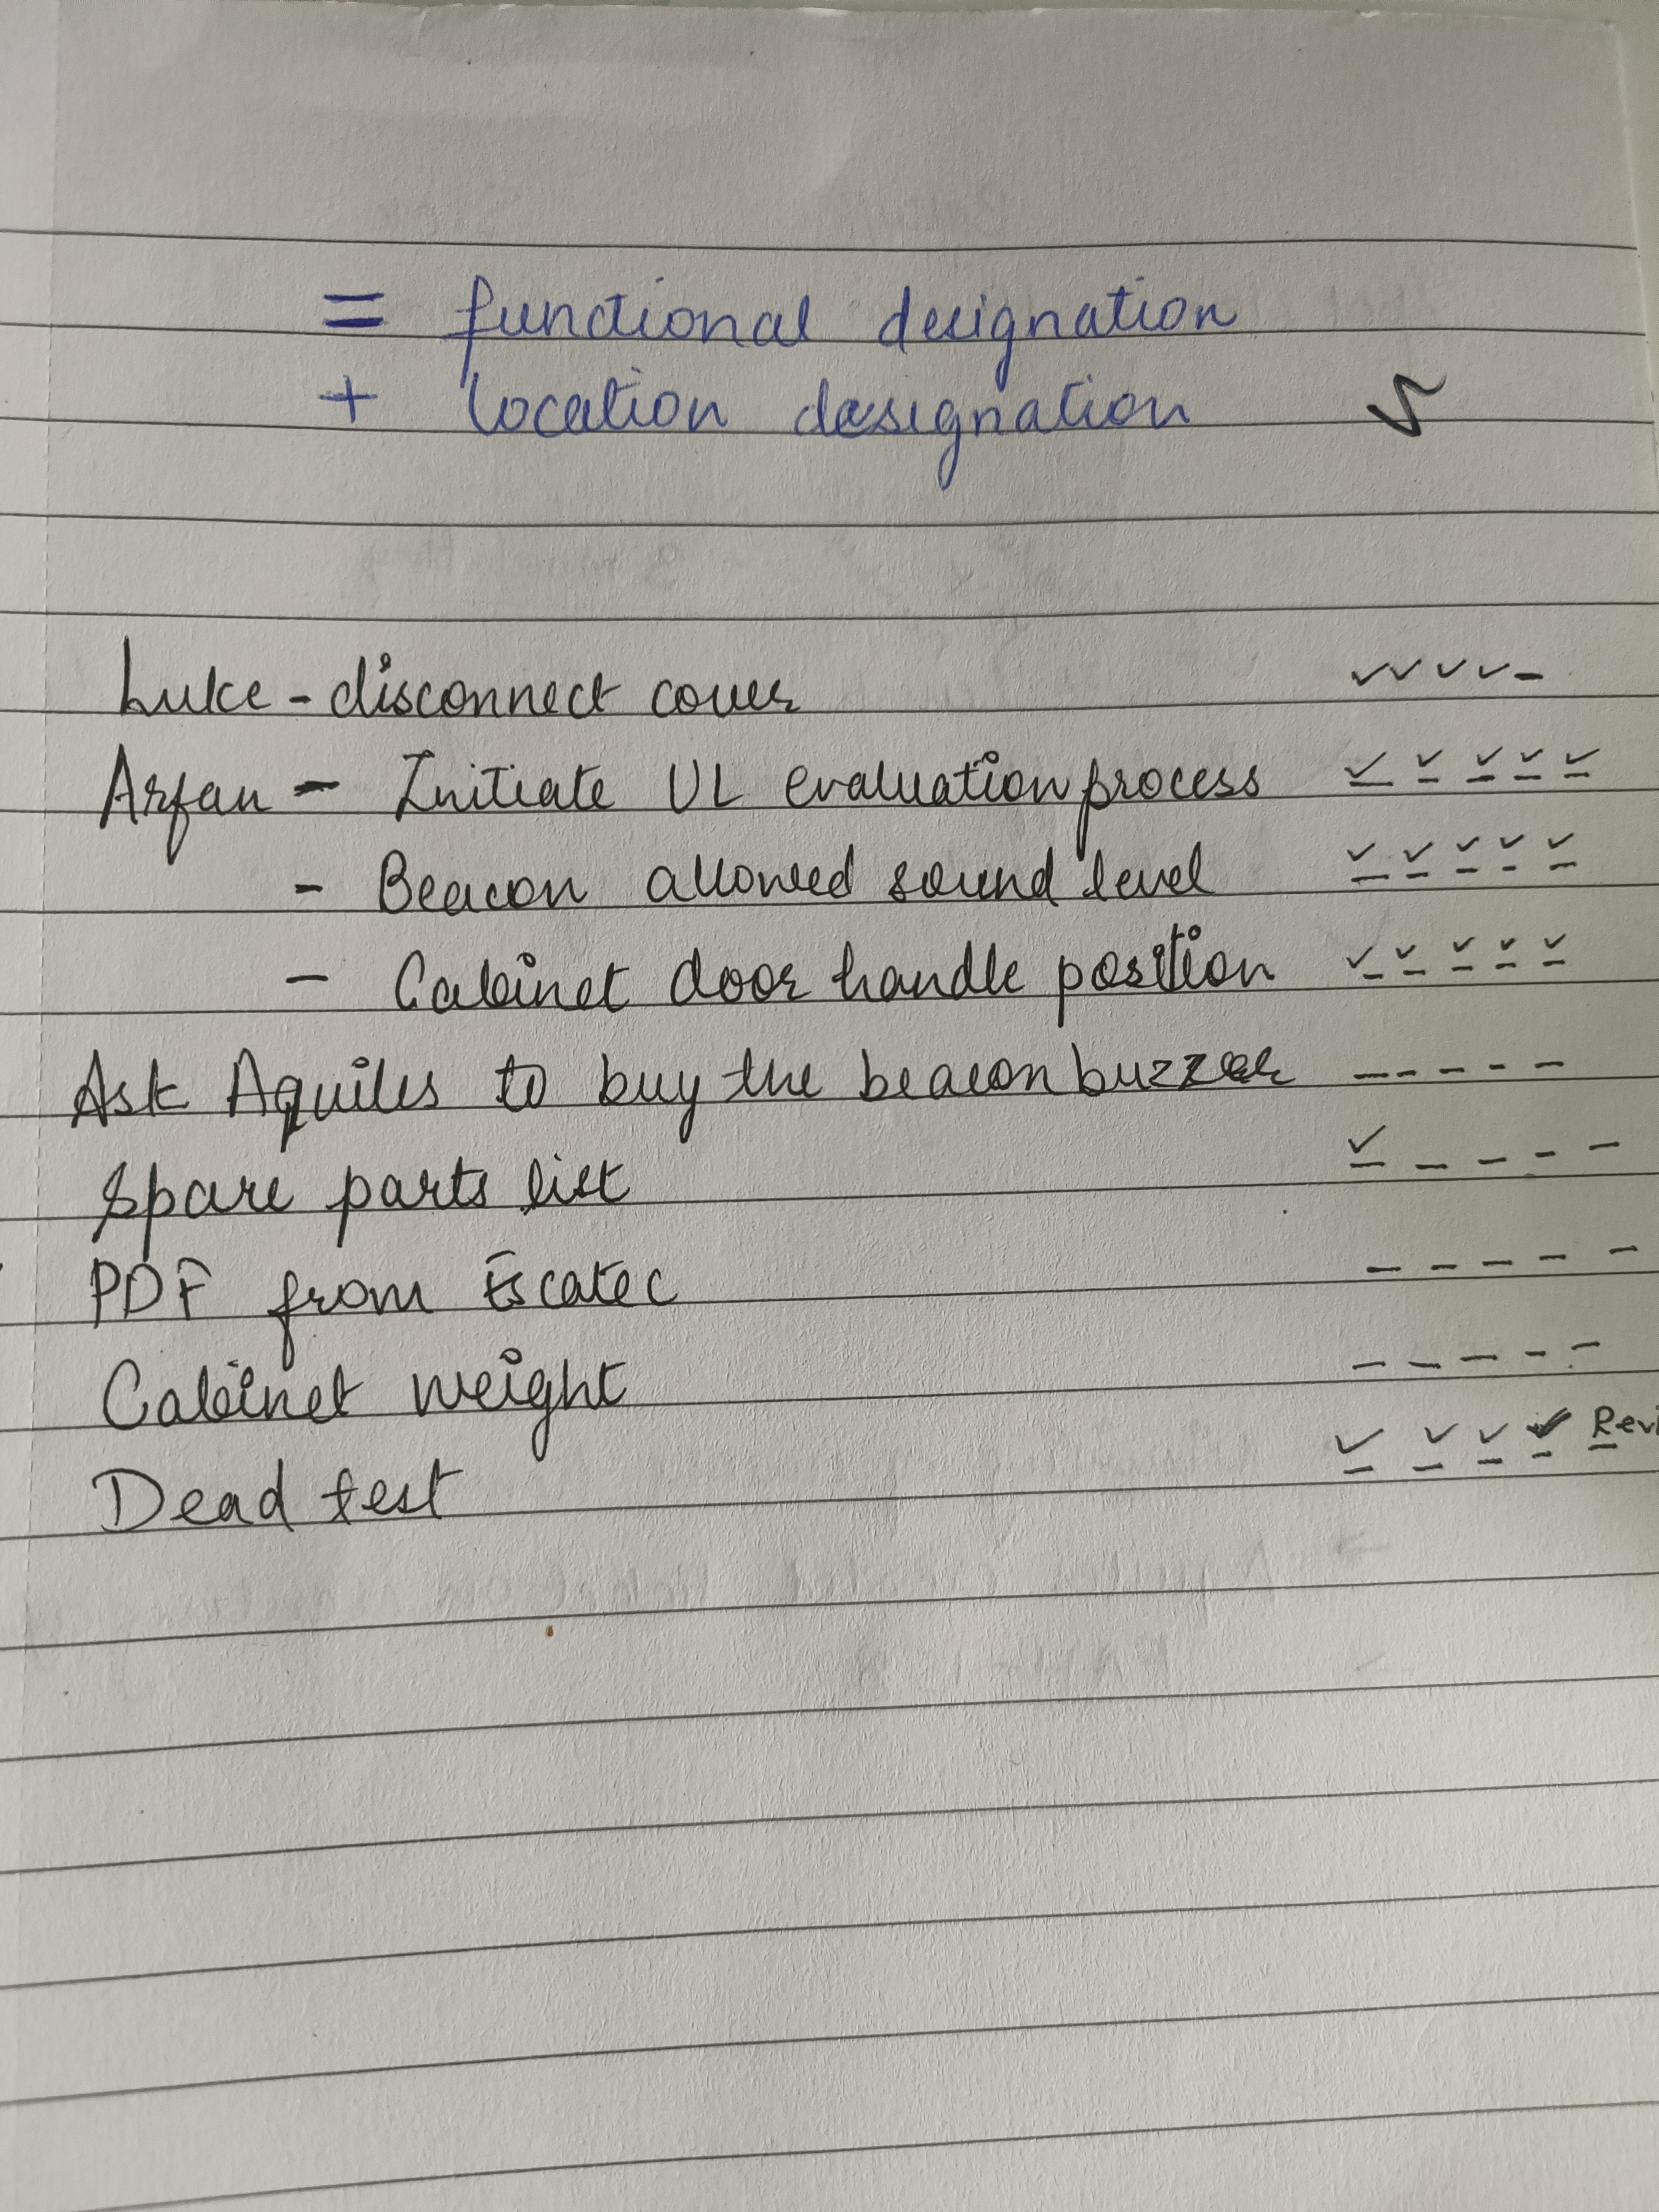 = functional designation
+ location designation ✓
Luke - disconnect cover ✓ ✓ ✓ ✓ -
Arfan - Initiate UL evaluation process ✓ ✓ ✓ ✓ ✓
- Beacon allowed sound level ✓ ✓ ✓ ✓ ✓
- Cabinet door handle position ✓ ✓ ✓ ✓ ✓
Ask Aquiles to buy the beacon buzzer - - - - -
Spare parts list ✓ - - - -
PDF from Escatec - - - - -
Cabinet weight - - - - -
Dead test ✓ ✓ ✓ ✓ Revi